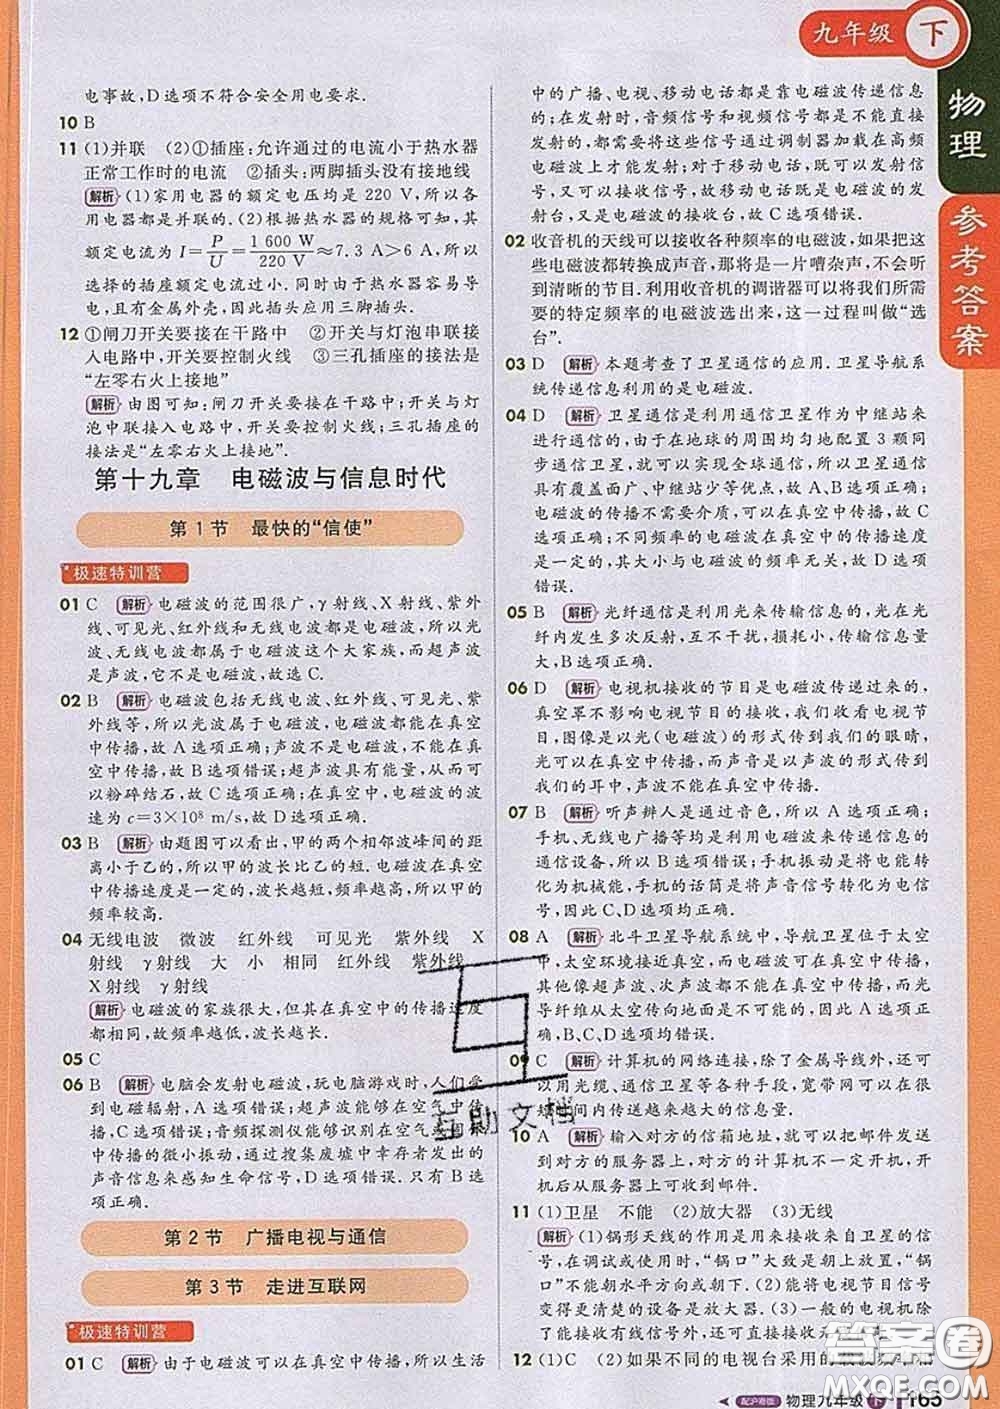 九年级 下
物理
参考答案
电事故,D选项不符合安全用电要求.
10 B
11 (1)并联 (2)①插座:允许通过的电流小于热水器
正常工作时的电流 ②插头:两脚插头没有接地线
解析 (1)家用电器的额定电压均是 220 V,所以各
用电器都是并联的.(2)根据热水器的规格可知,其
额定电流为 I=P/U=1 600 W/220 V≈7.3 A>6 A,所以,选择
的插座额定电流过小.由于热水器容易导
电,且有金属外壳,因此插头应用三脚插头.
12 ①闸刀开关要接在干路中 ②开关与灯泡串联接
入电路中,开关要控制火线 ③三孔插座的接法是
“左零右火上接地”
解析 由图可知:闸刀开关要接在干路中;开关与灯
泡串联接入电路中,开关要控制火线;三孔插座的
接法是“左零右火上接地”.
第十九章 电磁波与信息时代
第1节 最快的“信使”
极速特训营
01 C 解析 电磁波的范围很广,γ射线、X射线、紫外
线、可见光、红外线和无线电波都是电磁波,所以无
线电波、紫外线都属于电磁波这个大家族,而超声波
是声波,它不是电磁波,故选C.
02 B 解析 电磁波包括无线电波、红外线、可见光、紫外
线等,所以光波属于电磁波,电磁波都能在真空中
传播,故A选项正确;声波不是电磁波,不能在真空
中传播,故B选项错误;超声波具有能量,从而可
以粉碎结石,故C选项正确;在真空中,电磁波的波
速为c=3×10⁸ m/s,故D选项正确.
03 B 解析 由题图可以看出,甲的两个相邻波峰间的距
离小于乙的,所以甲的波长比乙的短.电磁波在真空
中传播速度是一定的,波长越短,频率越高,所以甲的
频率较高.
04 无线电波 微波 红外线 可见光 紫外线 X
射线 γ射线 大 小 相同 红外线 紫外线
X射线 γ射线
解析 电磁波的家族很大,但其在真空中的传播速度
都相同,故频率越低,波长越长.
05 C
06 B 解析 电脑会发射电磁波,玩电脑游戏时,人们受
到电磁辐射,A选项错误;超声波能够在空气中传
播,C选项错误;音频探测仪能够识别在空气或固体
中传播的微小振动,通过搜集废墟中幸存者发出的
声音信息来感知生命信号,D选项错误.故选B.
第2节 广播电视与通信
第3节 走进互联网
极速特训营
01 C 解析 由于电磁波可以在真空中传播,所以生活
中的广播、电视、移动电话都是靠电磁波传递信息
的;在发射时,音频信号和视频信号都是不能直接
发射的,都需要将这些信号通过调制器加载在高频
电磁波上才能发射;对于移动电话,既可以发射信
号,又可以接收信号,故移动电话既是电磁波的发
射台,又是电磁波的接收台,故C选项错误.
02 收音机的天线可以接收各种频率的电磁波,如果把这
些电磁波都转换成声音,那将是一片嘈杂声,不会听
到清晰的节目.利用收音机的调谐器可以将我们所需
要的特定频率的电磁波选出来,这一过程叫做“选
台”.
03 D 解析 本题考查了卫星通信的应用.卫星导航系
统传递信息利用的是电磁波.
04 D 解析 卫星通信是利用通信卫星作为中继站来
进行通信的,由于在地球的周围均匀地配置3颗同
步通信卫星,就可以实现全球通信,所以卫星通信
具有覆盖面广、中继站少等优点,故A、B选项正确;
电磁波的传播不需要介质,可以在真空中传播,故C
选项正确;不同频率的电磁波在真空中传播速度一
定的,其大小与电磁波的频率无关,故D选项
错误.
05 B 解析 光纤通信是利用光来传输信息的,光在光
纤内发生多次反射,互不干扰,损耗小,传输信息量
大,B选项正确.
06 D 解析 电视机接收的节目是电磁波传递过来的,
真空罩不影响电视节目的接收,我们收看电视节目
时,图像是以光(电磁波)的形式传到我们的眼睛
中,可以在真空中传播,而声音是以声波的形式传到
我们的耳中,不能在真空中传播.
07 B 解析 听声辨人是通过音色,所以A选项正确;
手机、无线电广播等均是利用电磁波来传递信息的
通信设备,所以B选项错误;手机振动是将电能转
化为机械能,手机的话筒是将声音信号转化为电信
号,因此C、D选项均正确.
08 A 解析 北斗卫星导航系统中,导航卫星位于太空
中,太空环境接近真空,而电磁波可以在真空中传播,
其他像超声波、次声波都不能在真空中传播,而光
导纤维从太空传向地面是不可能的.因此A选项正
确,B、C、D选项均错误.
09 C 解析 计算机的网络连接,除了金属导线外,还可
以用光缆、通信卫星等各种手段,宽带网可以在很
短时间内传送越来越大的信息量.
10 A 解析 输入对方的信箱地址,就可以把邮件发送到
对方的服务器上,对方的计算机不一定开机,开机
后从服务器上可收到邮件.
11 (1)卫星 不能 (2)放大器 (3)无线
解析 (1)锅形天线的作用是用来接收来自卫星的信
号,在调试或使用时,“锅口”大致是朝上的,“锅
口”不能朝水平方向或朝下.(2)能将电视节目信号
变得更清楚的设备是放大器.(3)一般的电视机都
能接收有线信号外,还可直接接收无线信号.
12 (1)C (2)如果不同的电视台采用的载波频率相
互助文档
答案圈
MXQE.COM
配沪粤版 物理九年级 下 165